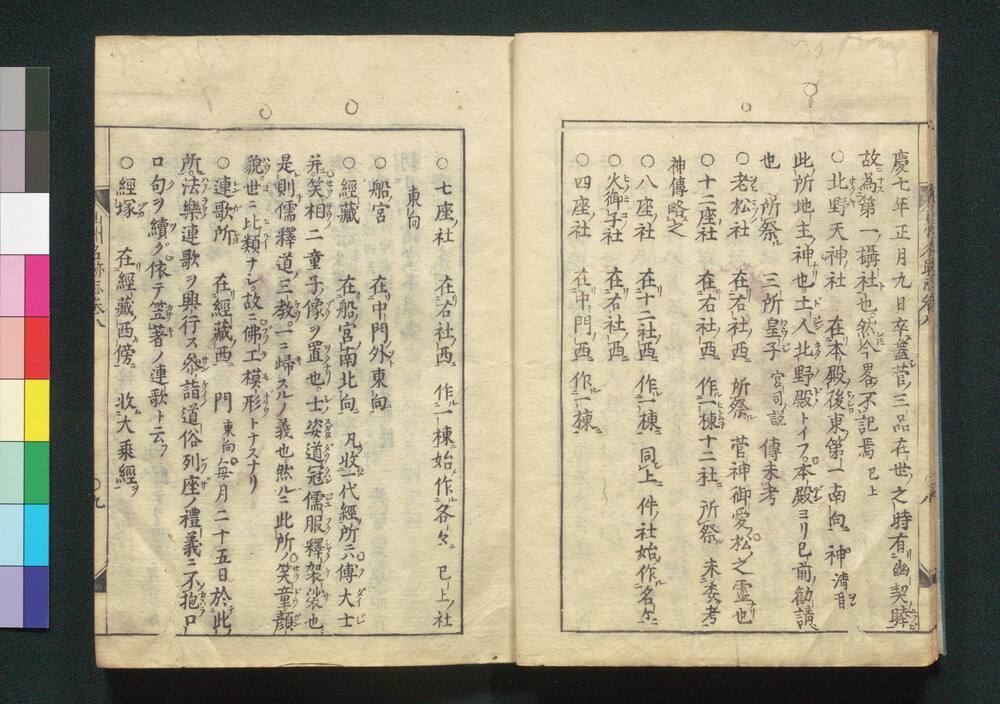 慶七年正月九日卒蓋菅三品在世之時有幽契歟
故為第一攝社也然今畧不記焉已上
○北野天神社 在本殿後東第一南向 神清音
此所地主神也土人北野殿トイフ本殿ヨリ已前勧請
也 所祭 三所皇子 宮司説 傳未考
○老松社 在右社西 所祭 菅神御愛松之霊也
○十二座社 在右社西 作一棟十二社 所祭 未委考
神傳略之
○八座社 在十二社西 作一棟 同上 件社始作名々
○火御子社 在右社西
○四座社 在中門西 作一棟
○七座社 在右社西 作一棟始作各々 已上社
東向
○船宮 在中門外東向
○經藏 在船宮南北向 凡收一代經所ニハ傅大士
并笑相二童子像ヲ置也士姿道冠儒服釋袈裟也
是則儒釋道三教一ニ歸スルノ義也然ルニ此所ノ笑童顔
貌世ニ比類ナシ故ニ佛工模形トナスナリ
○連歌所 在經藏西 門東向 毎月二十五日於此
所法樂連歌ヲ興行ス参詣道俗列座ノ禮義ニ不抱口
口句ヲ續グ依テ笠著ノ連歌ト云フ
○經塚 在經藏西傍 收大乘經ヲ
山州名跡志巻八
○九